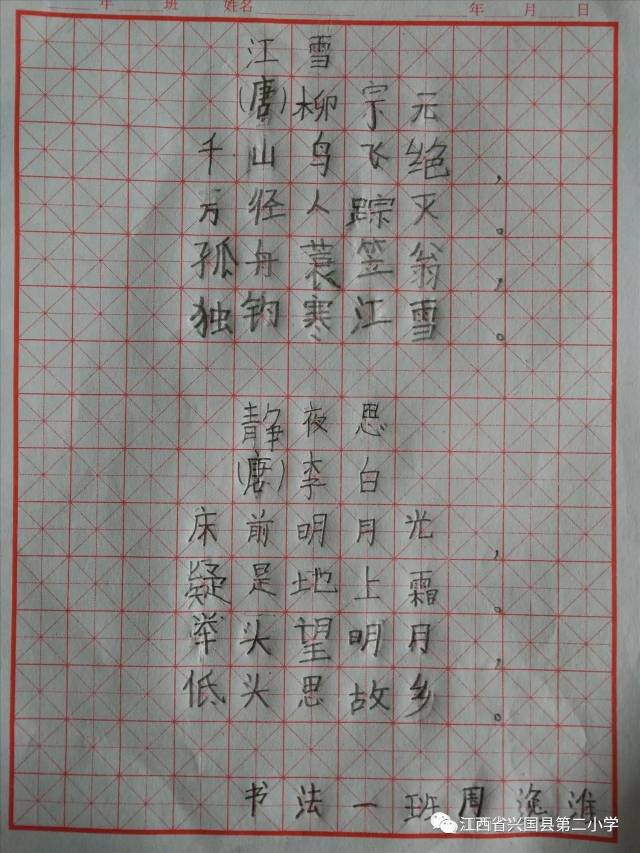 年 班 姓名 年 月 日
江雪
(唐)柳宗元
千山鸟飞绝，
万径人踪灭。
孤舟蓑笠翁，
独钓寒江雪。
静夜思
(唐)李白
床前明月光，
疑是地上霜。
举头望明月，
低头思故乡。
书法一班周逸淮
江西省兴国县第二小学